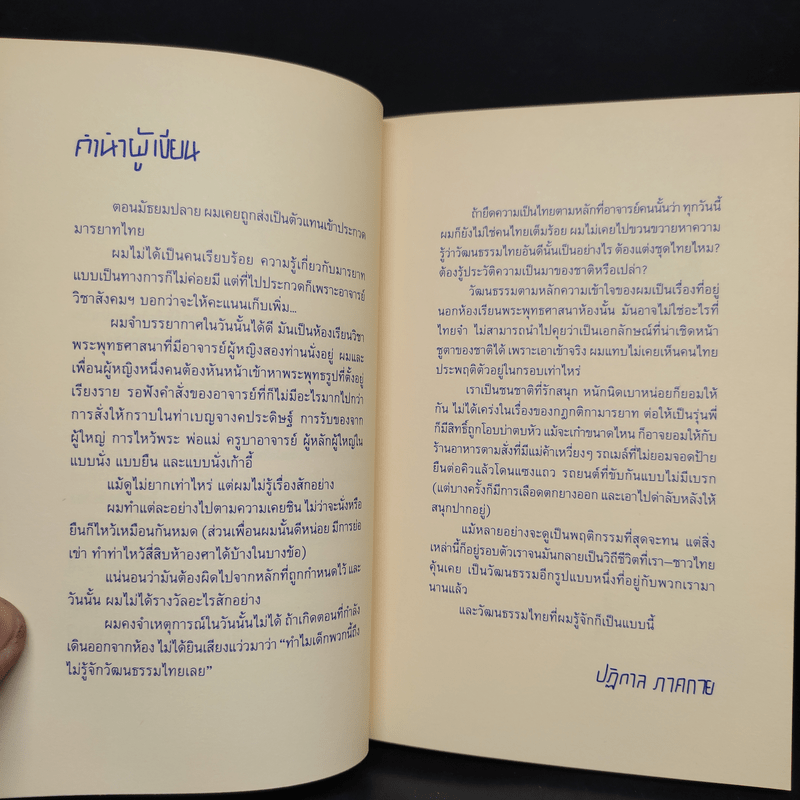 คำนำผู้เขียน
ตอนมัธยมปลาย ผมเคยถูกส่งเป็นตัวแทนเข้าประกวด
มารยาทไทย
ผมไม่ได้เป็นคนเรียบร้อย ความรู้เกี่ยวกับมารยาท
แบบเป็นทางการก็ไม่ค่อยมี แต่ที่ไปประกวดก็เพราะอาจารย์
วิชาสังคมฯ บอกว่าจะให้คะแนนเก็บเพิ่ม...
ผมจำบรรยากาศในวันนั้นได้ดี มันเป็นห้องเรียนวิชา
พระพุทธศาสนาที่มีอาจารย์ผู้หญิงสองท่านนั่งอยู่ ผมและ
เพื่อนผู้หญิงหนึ่งคนต้องหันหน้าเข้าหาพระพุทธรูปที่ตั้งอยู่
เรียงราย รอฟังคำสั่งของอาจารย์ที่ก็ไม่มีอะไรมากไปกว่า
การสั่งให้กราบในท่าเบญจางคประดิษฐ์ การรับของจาก
ผู้ใหญ่ การไหว้พระ พ่อแม่ ครูบาอาจารย์ ผู้หลักผู้ใหญ่ใน
แบบนั่ง แบบยืน และแบบนั่งเก้าอี้
แม้ดูไม่ยากเท่าไหร่ แต่ผมไม่รู้เรื่องสักอย่าง
ผมทำแต่ละอย่างไปตามความเคยชิน ไม่ว่าจะนั่งหรือ
ยืนก็ไหว้เหมือนกันหมด (ส่วนเพื่อนผมนั้นดีหน่อย มีการย่อ
เข่า ทำท่าไหว้สี่สิบห้าองศาได้บ้างในบางข้อ)
แน่นอนว่ามันต้องผิดไปจากหลักที่ถูกกำหนดไว้ และ
วันนั้น ผมไม่ได้รางวัลอะไรสักอย่าง
ผมคงจำเหตุการณ์ในวันนั้นไม่ได้ ถ้าเกิดตอนที่กำลัง
เดินออกจากห้อง ไม่ได้ยินเสียงแว่วมาว่า “ทำไมเด็กพวกนี้ถึง
ไม่รู้จักวัฒนธรรมไทยเลย”
ถ้ายึดความเป็นไทยตามหลักที่อาจารย์คนนั้นว่า ทุกวันนี้
ผมก็ยังไม่ใช่คนไทยเต็มร้อย ผมไม่เคยไปขวนขวายหาความ
รู้ว่าวัฒนธรรมไทยอันดีนั้นเป็นอย่างไร ต้องแต่งชุดไทยไหม?
ต้องรู้ประวัติความเป็นมาของชาติหรือเปล่า?
วัฒนธรรมตามหลักความเข้าใจของผมเป็นเรื่องที่อยู่
นอกห้องเรียนพระพุทธศาสนาห้องนั้น มันอาจไม่ใช่อะไรที่
ไทยจ๋า ไม่สามารถนำไปคุยว่าเป็นเอกลักษณ์ที่น่าเชิดหน้า
ชูตาของชาติได้ เพราะเอาเข้าจริง ผมแทบไม่เคยเห็นคนไทย
ประพฤติตัวอยู่ในกรอบเท่าไหร่
เราเป็นชนชาติที่รักสนุก หนักนิดเบาหน่อยก็ยอมให้
กัน ไม่ได้เคร่งในเรื่องของกฎกติกามารยาท ต่อให้เป็นรุ่นพี่
ก็มีสิทธิ์ถูกโอบบ่าตบหัว แม้จะเก๋าขนาดไหน ก็อาจยอมให้กับ
ร้านอาหารตามสั่งที่มีแม่ค้าเหวี่ยงๆ รถเมล์ที่ไม่ยอมจอดป้าย
ยืนต่อคิวแล้วโดนแซงแถว รถยนต์ที่ขับกันแบบไม่มีเบรก
(แต่บางครั้งก็มีการเลือดตกยางออก และเอาไปด่าลับหลังให้
สนุกปากอยู่)
แม้หลายอย่างจะดูเป็นพฤติกรรมที่สุดจะทน แต่สิ่ง
เหล่านี้ก็อยู่รอบตัวเราจนมันกลายเป็นวิถีชีวิตที่เรา–ชาวไทย
คุ้นเคย เป็นวัฒนธรรมอีกรูปแบบหนึ่งที่อยู่กับพวกเรามา
นานแล้ว
และวัฒนธรรมไทยที่ผมรู้จักก็เป็นแบบนี้
ปฏิกาล ภาคกาย